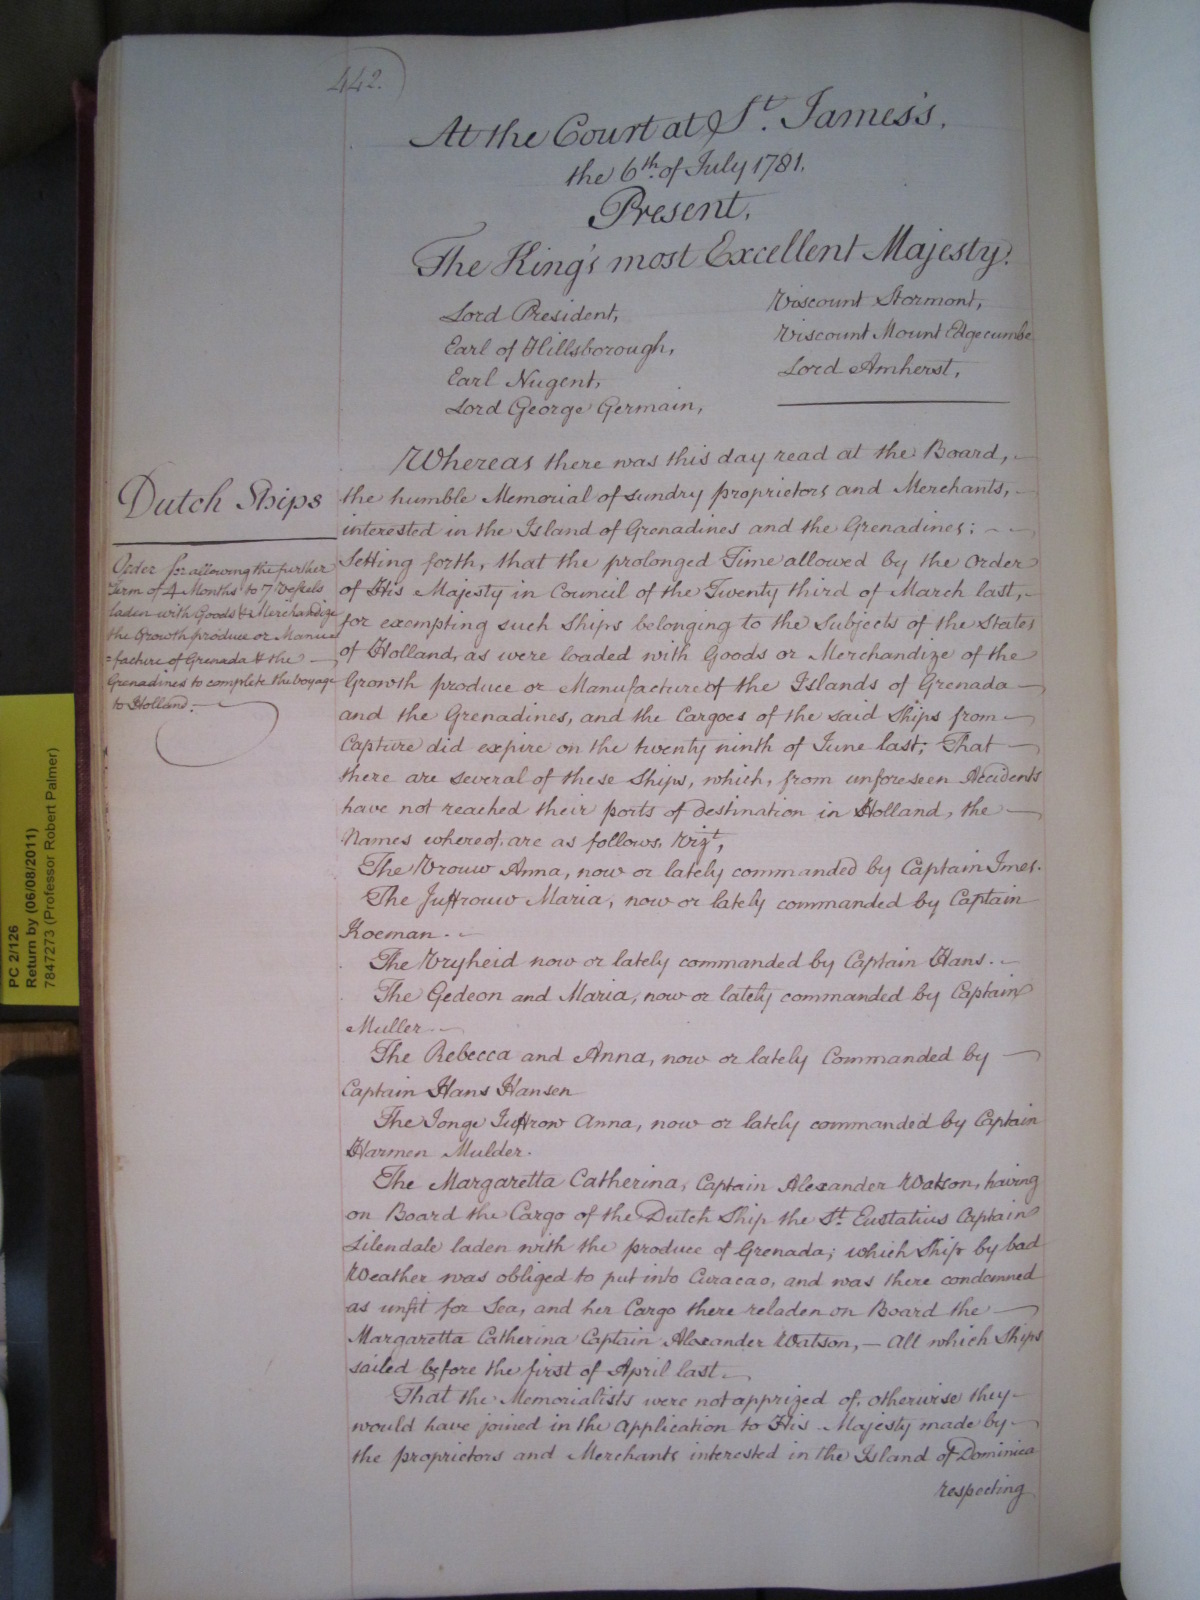 442.
At the Court at St. James's,
the 6th. of July 1781.
Present,
The King's most Excellent Majesty.
Lord President,
Earl of Hillsborough,
Earl Nugent,
Lord George Germain,
Viscount Stormont,
Viscount Mount Edgecumbe
Lord Amherst,
Dutch Ships
Order for allowing the further
Term of 4 Months to 7 Vessels
laden with Goods & Merchandize
the Growth produce or Manu
=facture of Grenada & the
Grenadines to complete the voyage
to Holland.
Whereas there was this day read at the Board,
the humble Memorial of sundry proprietors and Merchants,
interested in the Island of Grenadines and the Grenadines;
Setting forth, that the prolonged Time allowed by the Order
of His Majesty in Council of the Twenty third of March last,
for exempting such Ships belonging to the Subjects of the States
of Holland, as were loaded with Goods or Merchandize of the
Growth produce or Manufacture of the Islands of Grenada
and the Grenadines, and the Cargoes of the said Ships from
Capture did expire on the twenty ninth of June last; That
there are several of these Ships, which, from unforeseen Accidents
have not reached their ports of destination in Holland, the
Names whereof, are as follows, Vizt,
The Vrouw Anna, now or lately commanded by Captain Imes.
The Juffrouw Maria, now or lately commanded by Captain
Koeman.
The Vryheid now or lately commanded by Captain Hans.
The Gedeon and Maria, now or lately commanded by Captain
Muller
The Rebecca and Anna, now or lately Commanded by
Captain Hans Hansen
The Jonge Juffrow Anna, now or lately commanded by Captain
Harmen Mulder.
The Margaretta Catherina, Captain Alexander Watson, having
on Board the Cargo of the Dutch Ship the St. Eustatius Captain
Lilendale laden with the produce of Grenada; which Ship by bad
Weather was obliged to put into Curacao, and was there condemned
as unfit for Sea, and her Cargo there reladen on Board the
Margaretta Catherina Captain Alexander Watson, — All which Ships
sailed before the first of April last.
That the Memorialists were not apprized of, otherwise they
would have joined in the Application to His Majesty made by
the proprietors and Merchants interested in the Island of Dominica
respecting
PC 2/126
Return by (06/08/2011)
7847273 (Professor Robert Palmer)